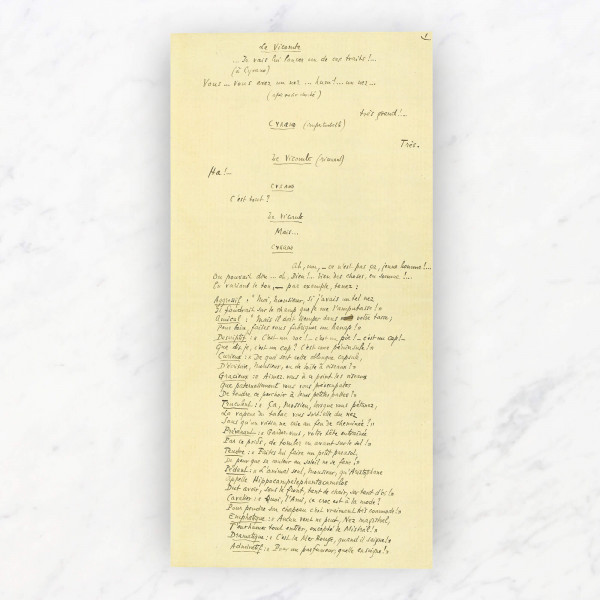 1
Le Vicomte
... Je vais lui lancer un de ces traits!...
(à Cyrano)
Vous... vous avez un nez... hum!... un nez...
très grand!...
Cyrano (imperturbable)
Très.
Le Vicomte (riant)
Ha!...
Cyrano
C'est tout?
Le Vicomte
Mais...
Cyrano
Ah, non, ce n'est pas ça, jeune homme!...
On pouvait dire... oh, Dieu!... bien des choses, en somme!...
En variant le ton, — par exemple, tenez:
Agressif: "Moi, monsieur, si j'avais un tel nez
Il faudrait sur le champ que je me l'amputasse!"
Amical: "Mais il doit tremper dans votre tasse;
Pour boire, faites vous fabriquer un hanap!"
Descriptif: "C'est un roc!... c'est un pic!... c'est un cap!...
Que dis-je, c'est un cap? C'est une péninsule!"
Curieux: "De quoi sert cette oblongue capsule,
D'écritoire, Monsieur, ou de boîte à ciseaux"
Gracieux: "Aimez vous à ce point les oiseaux
Que paternellement vous vous préoccupâtes
De tendre ce perchoir à leurs petites pattes?"
Truculent: "Ça, Monsieur, lorsque vous pétunez,
La vapeur du tabac vous sort-elle du nez
Sans qu'un voisin ne crie au feu de cheminée?"
Prévenant: "Gardez-vous, votre tête entraînée
Par ce poids, de tomber en avant sur le sol!"
Tendre: "Faites lui faire un petit parasol,
De peur que sa couleur au soleil ne se fane!"
Pédant: "L'animal seul, Monsieur, qu'Aristophane
Appelle Hippocampelephantocamélos
Dut avoir, sous le front, tant de chair, sur tant d'os!"
Cavalier: "Quoi, l'Ami, ce croc est à la mode?
Pour pendre son chapeau c'est vraiment très commode!"
Emphatique: "Aucun vent ne peut, Nez magistral,
T'enrhumer tout entier, excepté le Mistral!"
Dramatique: "C'est la Mer Rouge, quand il saigne!"
Admiratif: "Pour un parfumeur, quelle enseigne!"